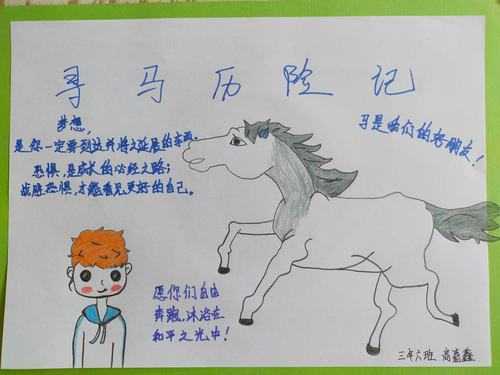 寻马历险记
梦想,
是你一定要到达并将之延展的东西。
恐惧,是成长的必经之路;
战胜恐惧,才能看见更好的自己。
马是我们的好朋友!
愿你们自由
奔跑,沐浴在
和平之光中!
三年六班 高